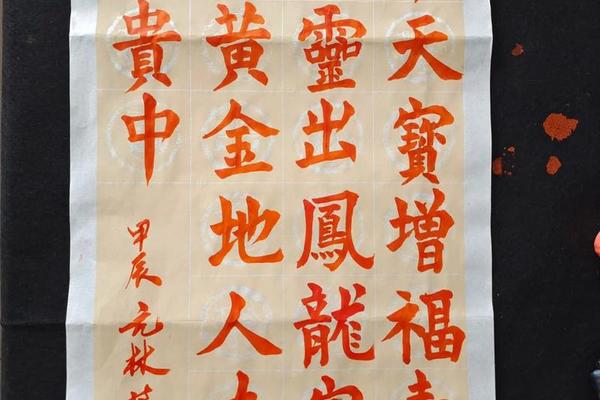 天寶增福
靈出鳳龍
黃金地人
貴中
甲辰 元林